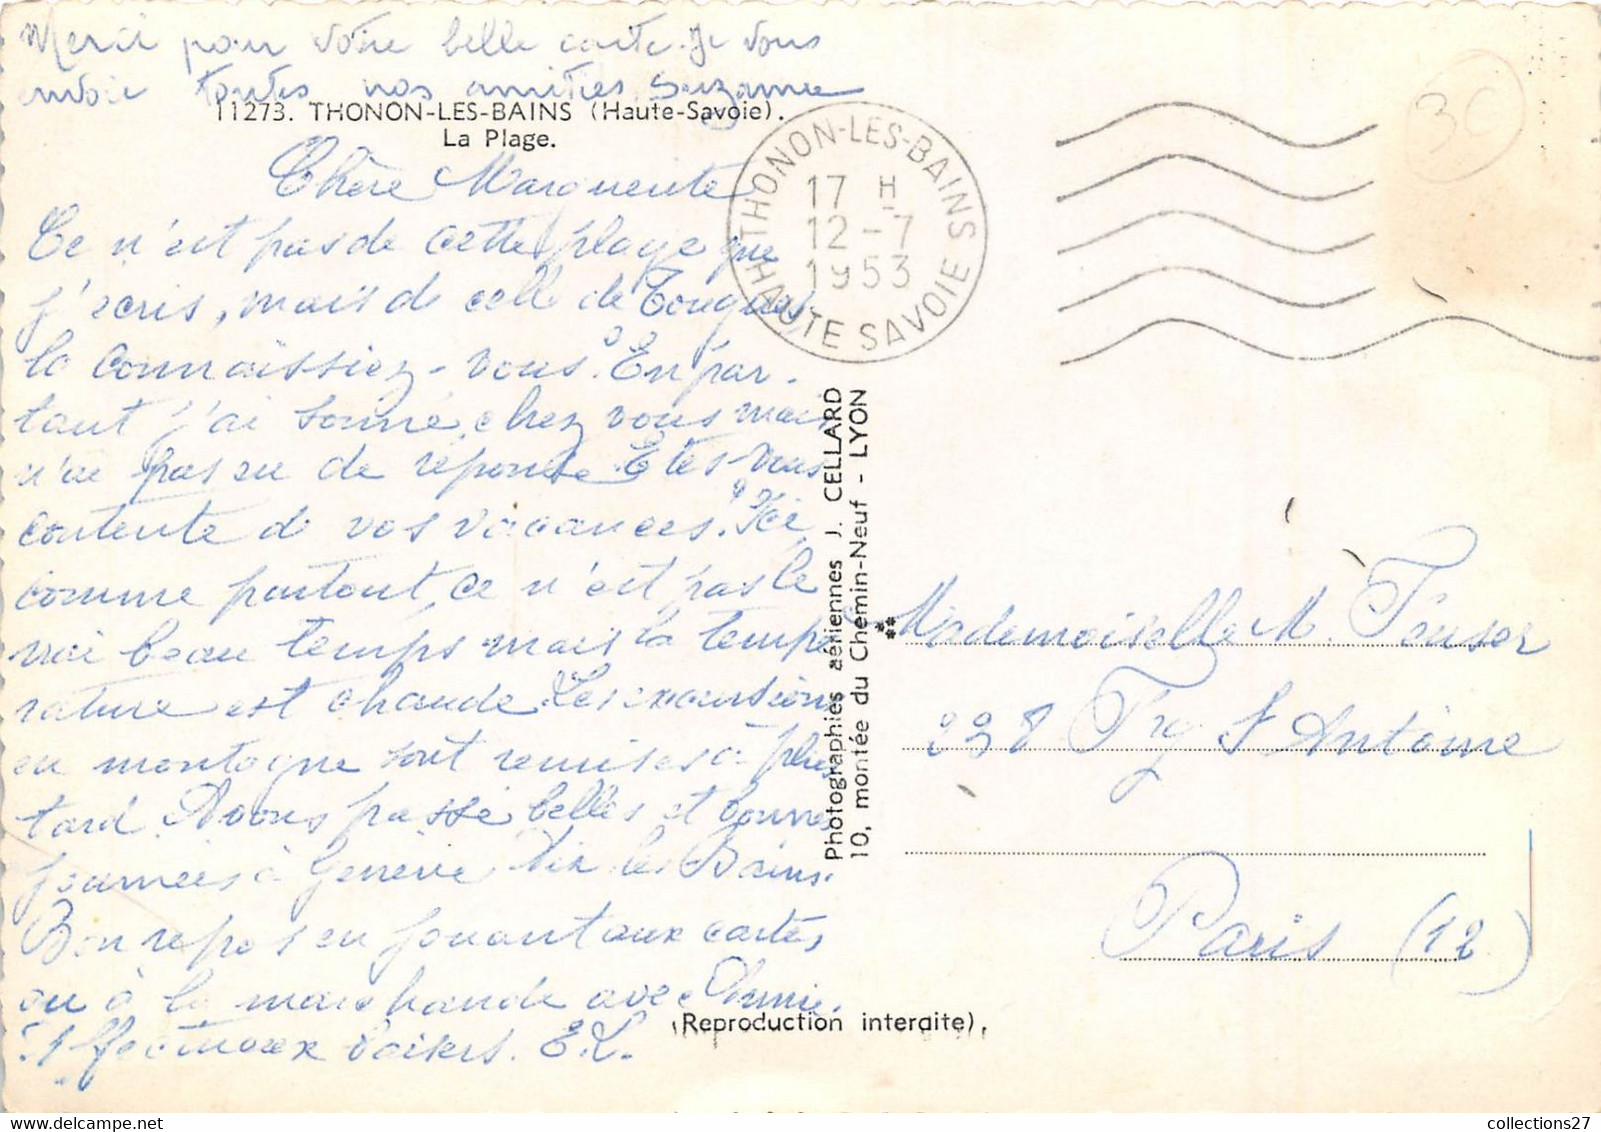 Merci pour votre belle carte. Je vous
envoie toutes nos amitiés. Suzanne
11273. THONON-LES-BAINS (Haute-Savoie).
La Plage.
Chère Marguerite
Ce n'est pas de cette plage que
j'écris, mais de celle de Tougues
la connaissiez-vous? En par-
tant j'ai sonné chez vous mais
n'ai pas eu de réponse. Etes-vous
contente de vos vacances? Ici,
comme partout, ce n'est pas le
vrai beau temps mais la tempé
rature est chaude. Les excursions
en montagne sont remises à plus
tard. Avons passé belles et bonnes
journées à Genève Aix les Bains.
Bon repos en jouant aux cartes
ou à la marchande avec
Affectueux baisers. E.L.
THONON-LES-BAINS
17 H
12-7
1953
HAUTE SAVOIE
30
Photographies aériennes J. CELLARD
10, montée du Chemin-Neuf - LYON
Mademoiselle M.
238 Fg St Antoine
Paris (12)
(Reproduction interdite).
collections27